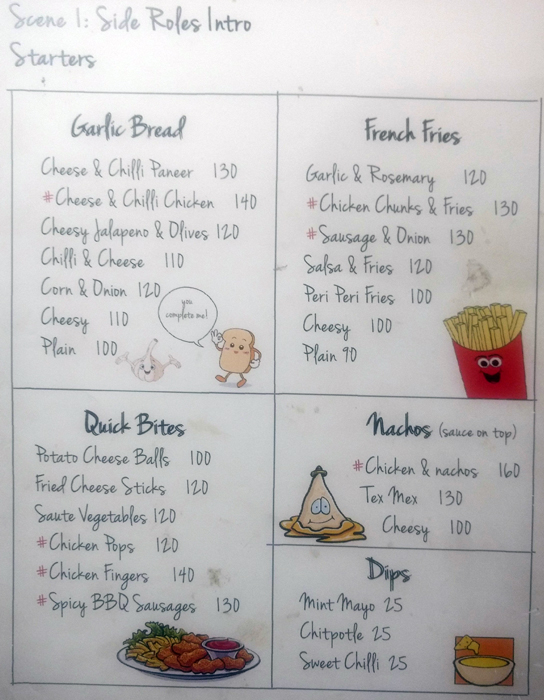 Scene 1: Side Roles Intro
Starters
Garlic Bread
Cheese & Chilli Paneer 130
#Cheese & Chilli Chicken 140
Cheesy Jalapeno & Olives 120
Chilli & Cheese 110
Corn & Onion 120
Cheesy 110
Plain 100
you
complete me!
French Fries
Garlic & Rosemary 120
#Chicken Chunks & Fries 130
#Sausage & Onion 130
Salsa & Fries 120
Peri Peri Fries 100
Cheesy 100
Plain 90
Quick Bites
Potato Cheese Balls 100
Fried Cheese Sticks 120
Saute Vegetables 120
#Chicken Pops 120
#Chicken Fingers 140
#Spicy BBQ Sausages 130
Nachos (sauce on top)
#Chicken & nachos 160
Tex Mex 130
Cheesy 100
Dips
Mint Mayo 25
Chitpotle 25
Sweet Chilli 25